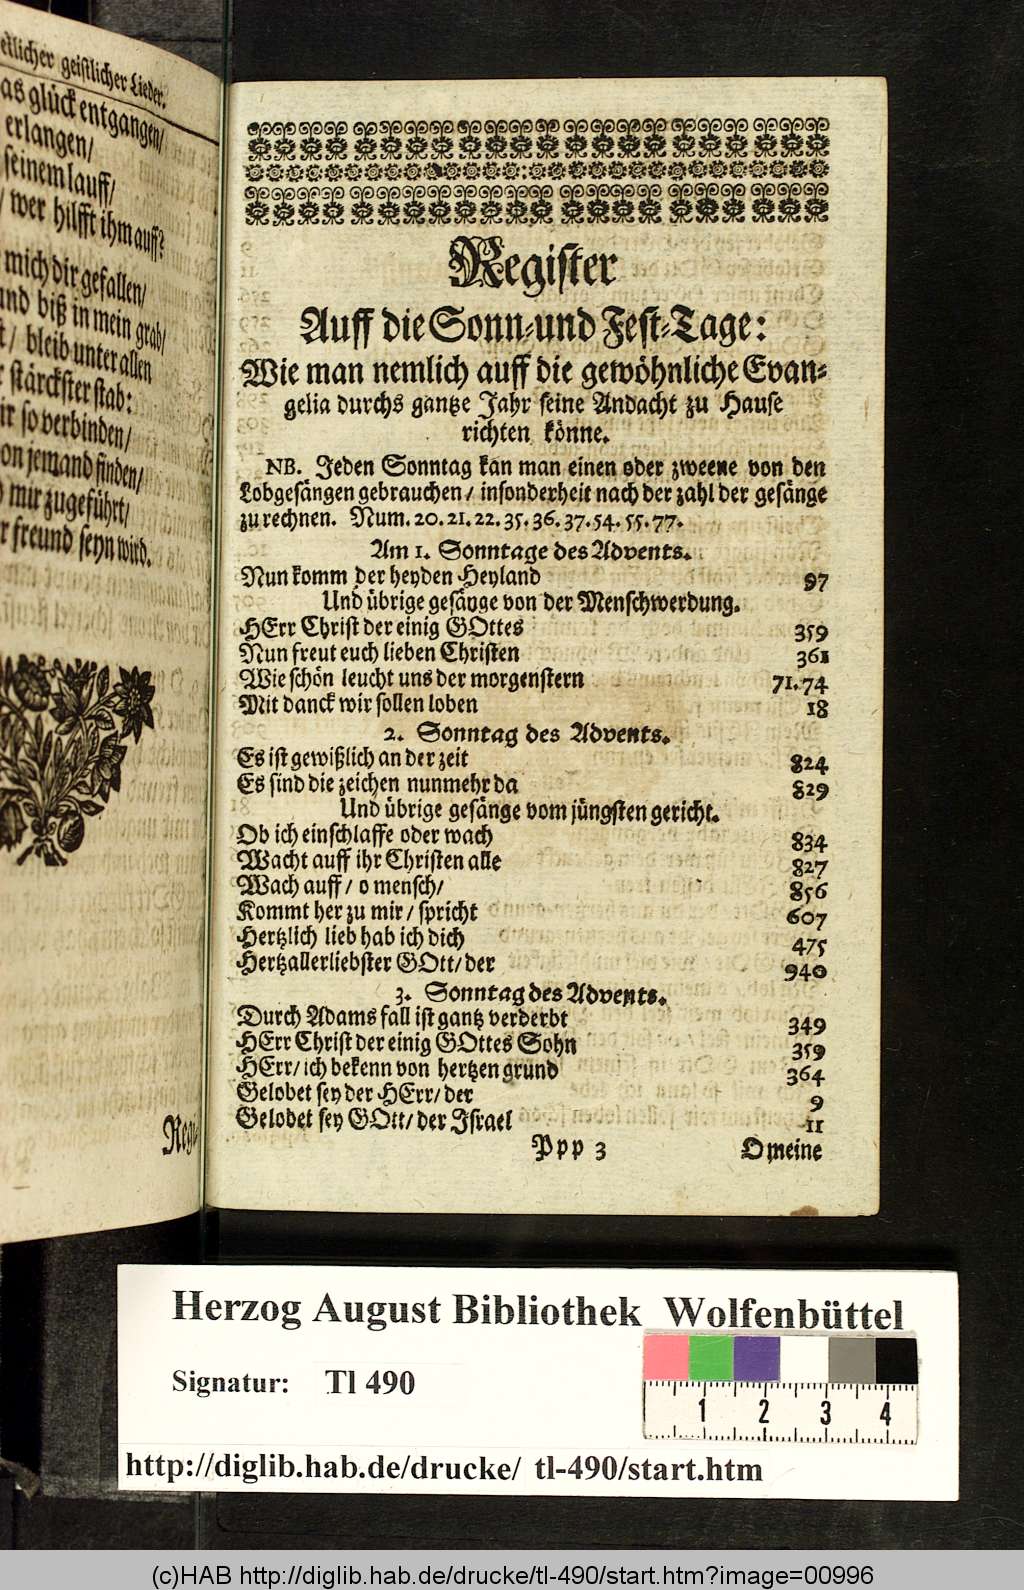 etlicher geistlicher Lieder.
as glück entgangen/
erlangen/
seinem lauff/
/ wer hilfft ihm auff?
mich dir gefallen/
und biß in mein grab/
t/ bleib unter allen
stärckster stab:
ir so verbinden/
on jemand finden/
mir zugeführt/
r freund seyn wird.
Regi-
Register
Auff die Sonn- und Fest-Tage:
Wie man nemlich auff die gewöhnliche Evan-
gelia durchs gantze Jahr seine Andacht zu Hause
richten könne.
NB. Jeden Sonntag kan man einen oder zweene von den
Lobgesängen gebrauchen/ insonderheit nach der zahl der gesänge
zu rechnen. Num. 20. 21. 22. 35. 36. 37. 54. 55. 77.
Am 1. Sonntage des Advents.
Nun komm der heyden Heyland 97
Und übrige gesänge von der Menschwerdung.
HErr Christ der einig GOttes 359
Nun freut euch lieben Christen 361
Wie schön leucht uns der morgenstern 71. 74
Mit danck wir sollen loben 18
2. Sonntag des Advents.
Es ist gewißlich an der zeit 824
Es sind die zeichen nunmehr da 829
Und übrige gesänge vom jüngsten gericht.
Ob ich einschlaffe oder wach 834
Wacht auff ihr Christen alle 827
Wach auff/ o mensch/ 856
Kommt her zu mir/ spricht 607
Hertzlich lieb hab ich dich 475
Hertzallerliebster GOtt/ der 940
3. Sonntag des Advents.
Durch Adams fall ist gantz verderbt 349
HErr Christ der einig GOttes Sohn 359
HErr/ ich bekenn von hertzen grund 364
Gelobet sey der HErr/ der 9
Gelobet sey GOtt/ der Israel 11
Ppp 3 O meine
Herzog August Bibliothek Wolfenbüttel
Signatur: Tl 490
1 2 3 4
http://diglib.hab.de/drucke/ tl-490/start.htm
(c)HAB http://diglib.hab.de/drucke/tl-490/start.htm?image=00996